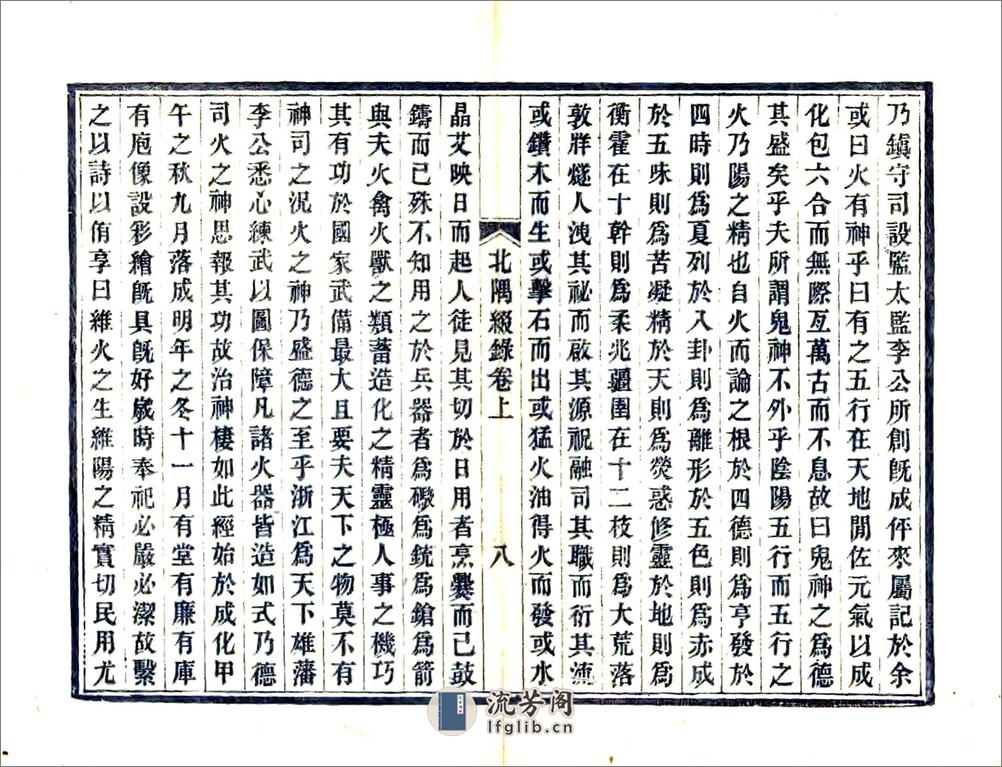 乃鎮守司設監太監李公所創旣成伻來屬記於余
或曰火有神乎曰有之五行在天地閒佐元氣以成
化包六合而無際亙萬古而不息故曰鬼神之爲德
其盛矣乎夫所謂鬼神不外乎陰陽五行而五行之
火乃陽之精也自火而論之根於四德則爲亨發於
四時則爲夏列於入卦則爲離形於五色則爲赤成
於五味則爲苦凝精於天則爲熒惑修靈於地則爲
衡霍在十幹則爲柔兆疆圍在十二枝則爲大荒落
敦牂燧人洩其祕而啟其源祝融司其職而衍其流
或鑽木而生或擊石而出或猛火油得火而發或水
北隅綴錄卷上
八
晶艾映日而起人徒見其切於日用者烹爨而已鼓
鑄而已殊不知用之於兵器者爲礮爲銃爲鎗爲箭
與夫火禽火獸之類蓄造化之精靈極人事之機巧
其有功於國家武備最大且要夫天下之物莫不有
神司之況火之神乃盛德之至乎浙江爲天下雄藩
李公悉心練武以圖保障凡諸火器皆造如式乃德
司火之神思報其功故治神棲如此經始於成化甲
午之秋九月落成明年之冬十一月有堂有廉有庫
有庖像設彩繪旣具旣好歲時奉祀必嚴必潔故繫
之以詩以侑享曰維火之生維陽之精實切民用尤
流芳阁
lfglib.cn